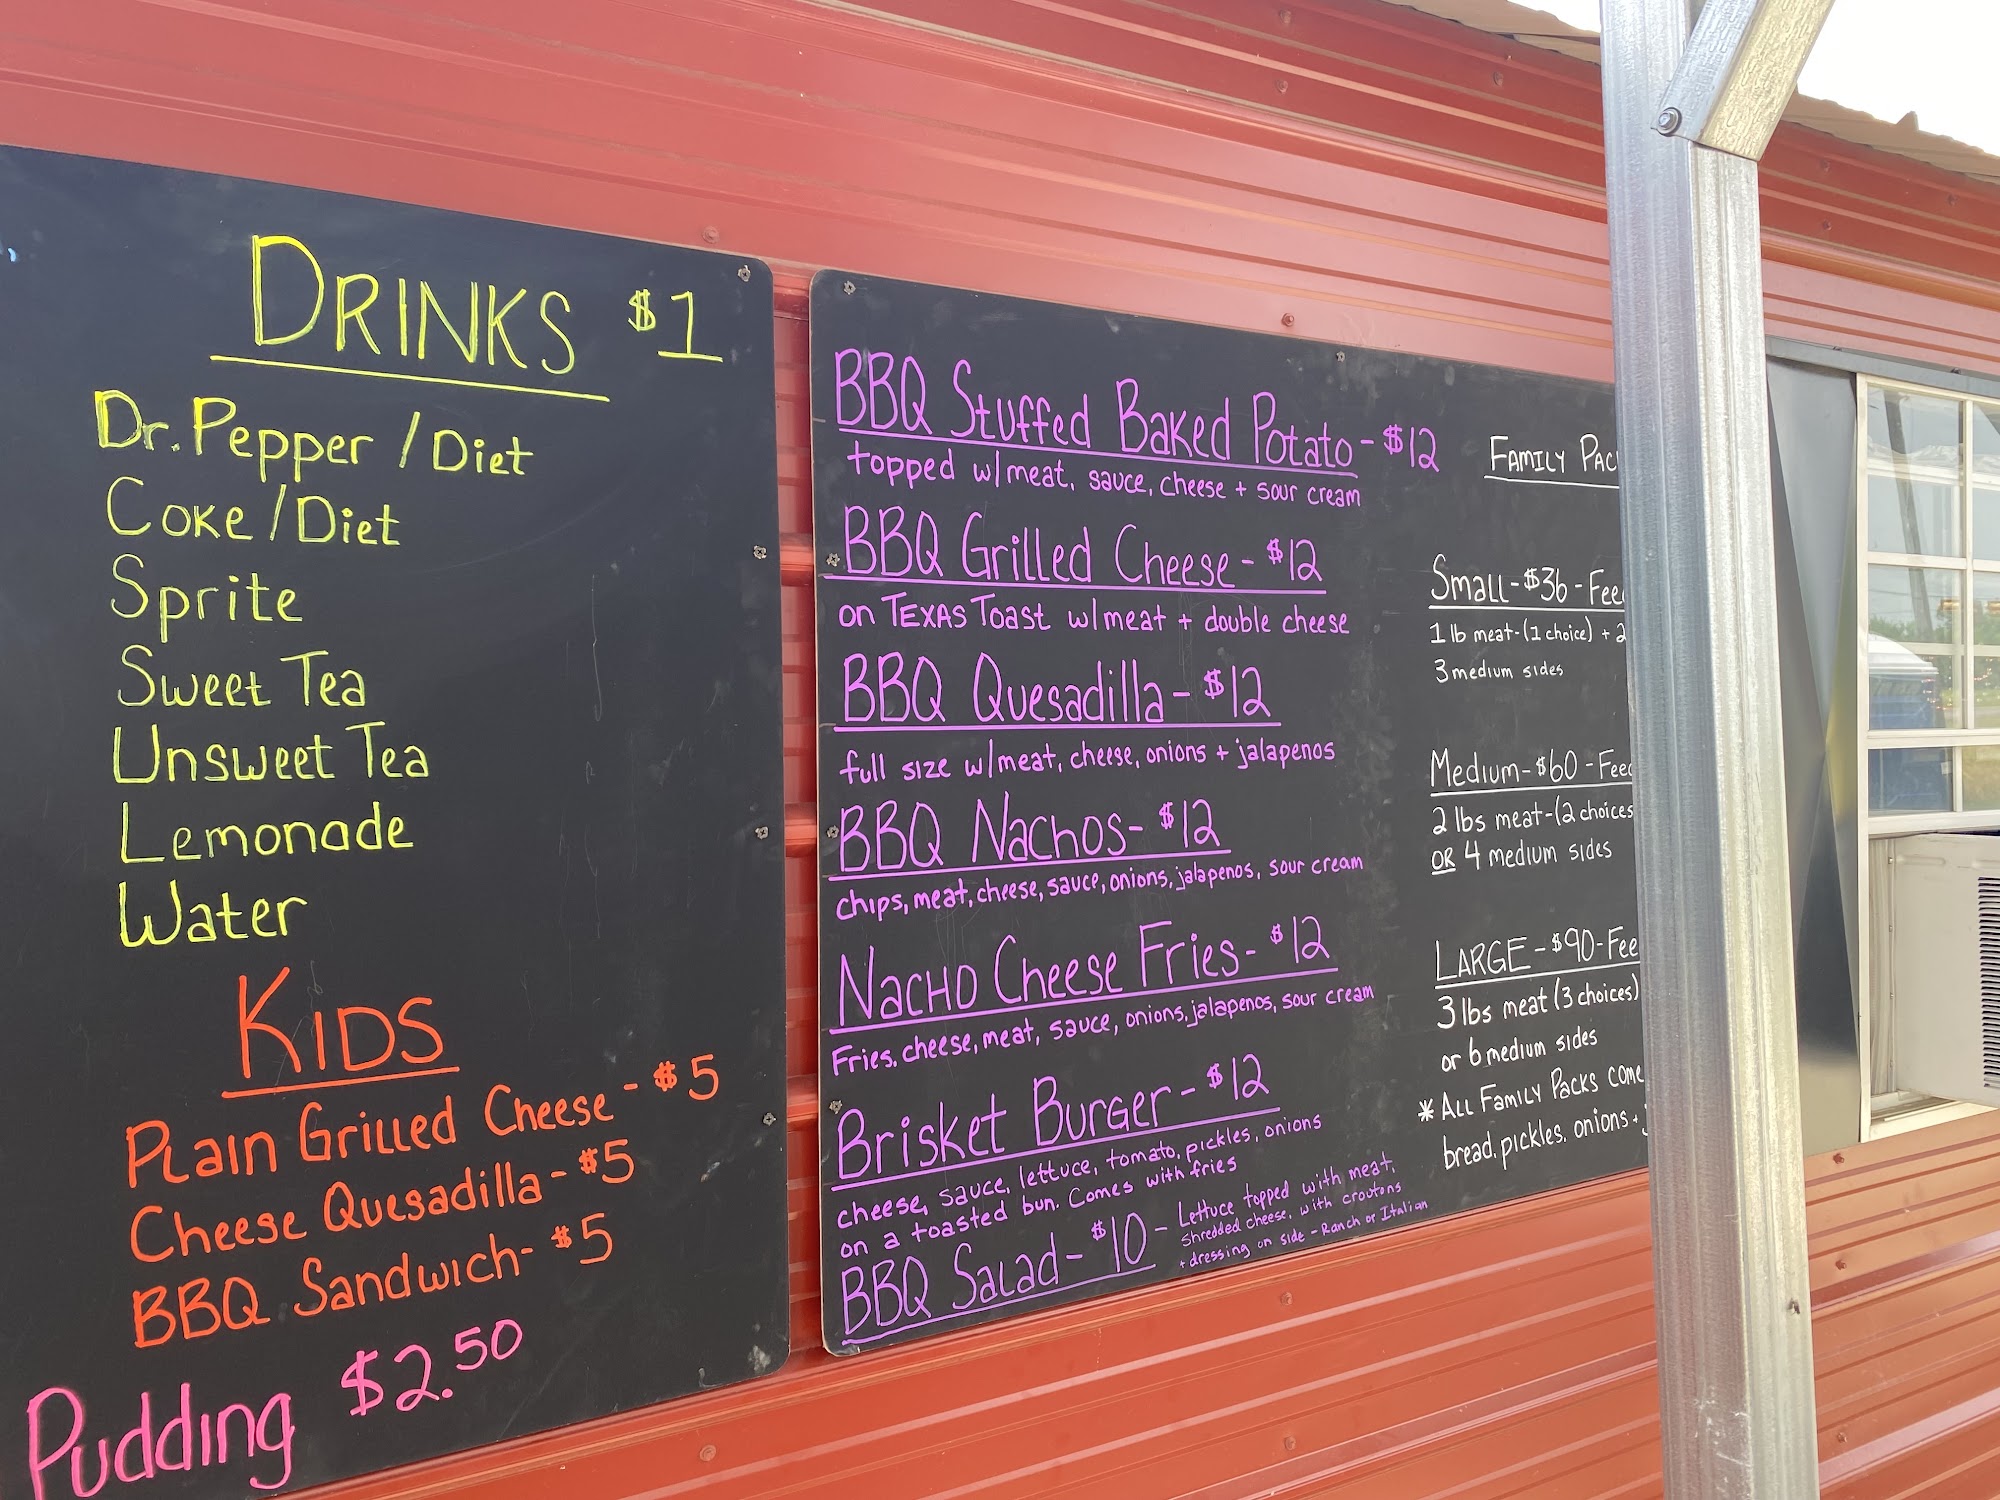 DRINKS $1
Dr. Pepper / Diet
Coke / Diet
Sprite
Sweet Tea
Unsweet Tea
Lemonade
Water
KIDS
Plain Grilled Cheese - $5
Cheese Quesadilla - $5
BBQ Sandwich - $5
Pudding $2.50
BBQ Stuffed Baked Potato - $12
topped w/meat, sauce, cheese + sour cream
BBQ Grilled Cheese - $12
on TEXAS Toast w/meat + double cheese
BBQ Quesadilla - $12
full size w/meat, cheese, onions + jalapenos
BBQ Nachos - $12
chips, meat, cheese, sauce, onions, jalapenos, sour cream
Nacho Cheese Fries - $12
Fries, cheese, meat, sauce, onions, jalapenos, sour cream
Brisket Burger - $12
cheese, sauce, lettuce, tomato, pickles, onions
on a toasted bun. Comes with fries
BBQ Salad - $10 - Lettuce topped with meat,
shredded cheese, with croutons
+ dressing on side - Ranch or Italian
FAMILY
Small - $36 -
1 lb meat - (1 choice) + 2
3 medium sides
Medium - $60 -
2 lbs meat - (2 choices
OR 4 medium sides
LARGE - $90 -
3 lbs meat (3 choices)
or 6 medium sides
* ALL FAMILY PACKS COME
bread, pickles, onions +